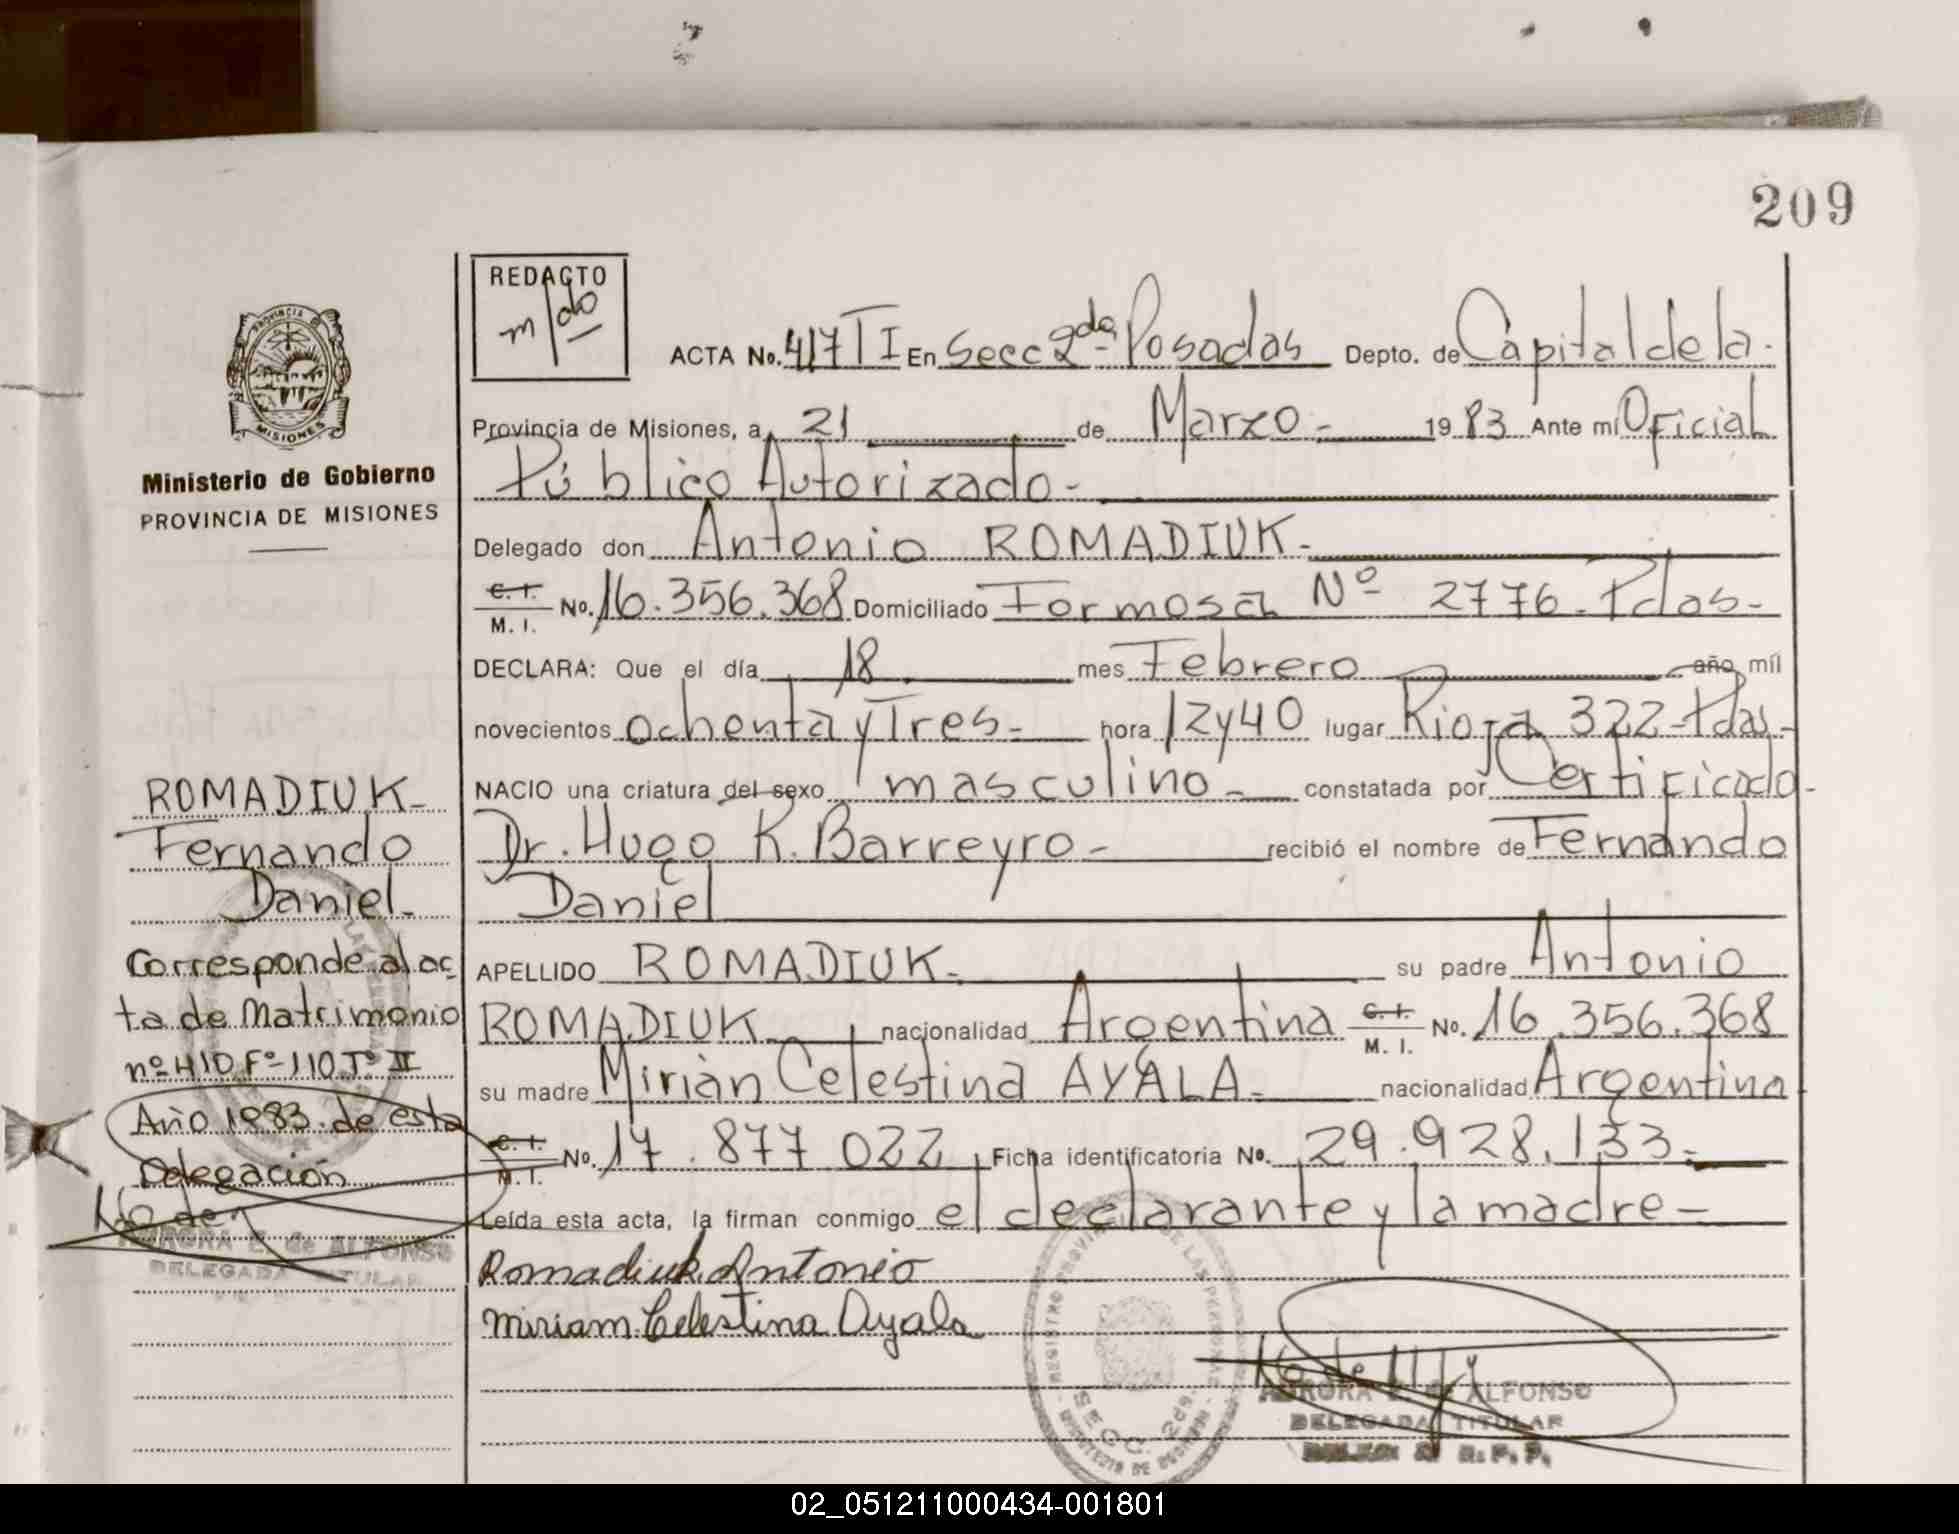 209
REDACTO
m/do
ACTA No. 417 T I En Secc 2da- Posadas Depto. de Capital de la-
PROVINCIA DE
MISIONES
Ministerio de Gobierno
PROVINCIA DE MISIONES
Provincia de Misiones, a 21 de Marzo- 1983 Ante mi Oficial
Público Autorizado-
Delegado don Antonio ROMADIUK-
C. I.
M. I. No. 16.356.368 Domiciliado Formosa Nº 2776-Pdas-
DECLARA: Que el día 18 mes Febrero año mil
novecientos ochenta y Tres- hora 12y40 lugar Rioja 322-Pdas-
NACIO una criatura del sexo masculino- constatada por Certificado-
Dr. Hugo R. Barreyro- recibió el nombre de Fernando
Daniel
APELLIDO ROMADIUK- su padre Antonio
ROMADIUK nacionalidad Argentina C. I. M. I. No. 16.356.368
su madre Mirian Celestina AYALA- nacionalidad Argentina
C. I. M. I. No. 17.877 022 Ficha identificatoria No. 29.928.133-
Leída esta acta, la firman conmigo el declarante y la madre-
Romadiuk Antonio
Miriam Celestina Ayala
ROMADIUK-
Fernando
Daniel-
Corresponde al ac
ta de Matrimonio
nº 410 Fº-110 Tº II
Año 1983. de esta
Delegación
AURORA E. de ALFONSO
DELEGADA TITULAR
REGISTRO PROVINCIAL DE LAS PERSONAS
SECC. 2da.
AURORA E. de ALFONSO
DELEGADA TITULAR
R. P. P.
02_051211000434-001801